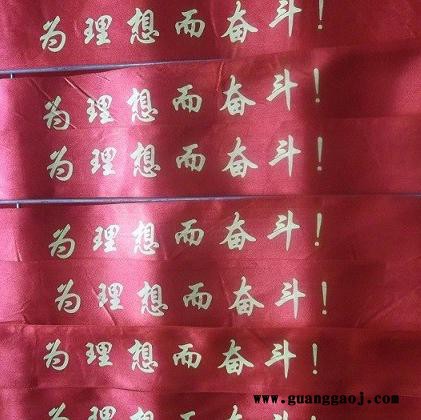 为理想而奋斗!
为理想而奋斗!
为理想而奋斗!
为理想而奋斗!
为理想而奋斗!
为理想而奋斗!
www.guanggaoj.com
为理想而奋